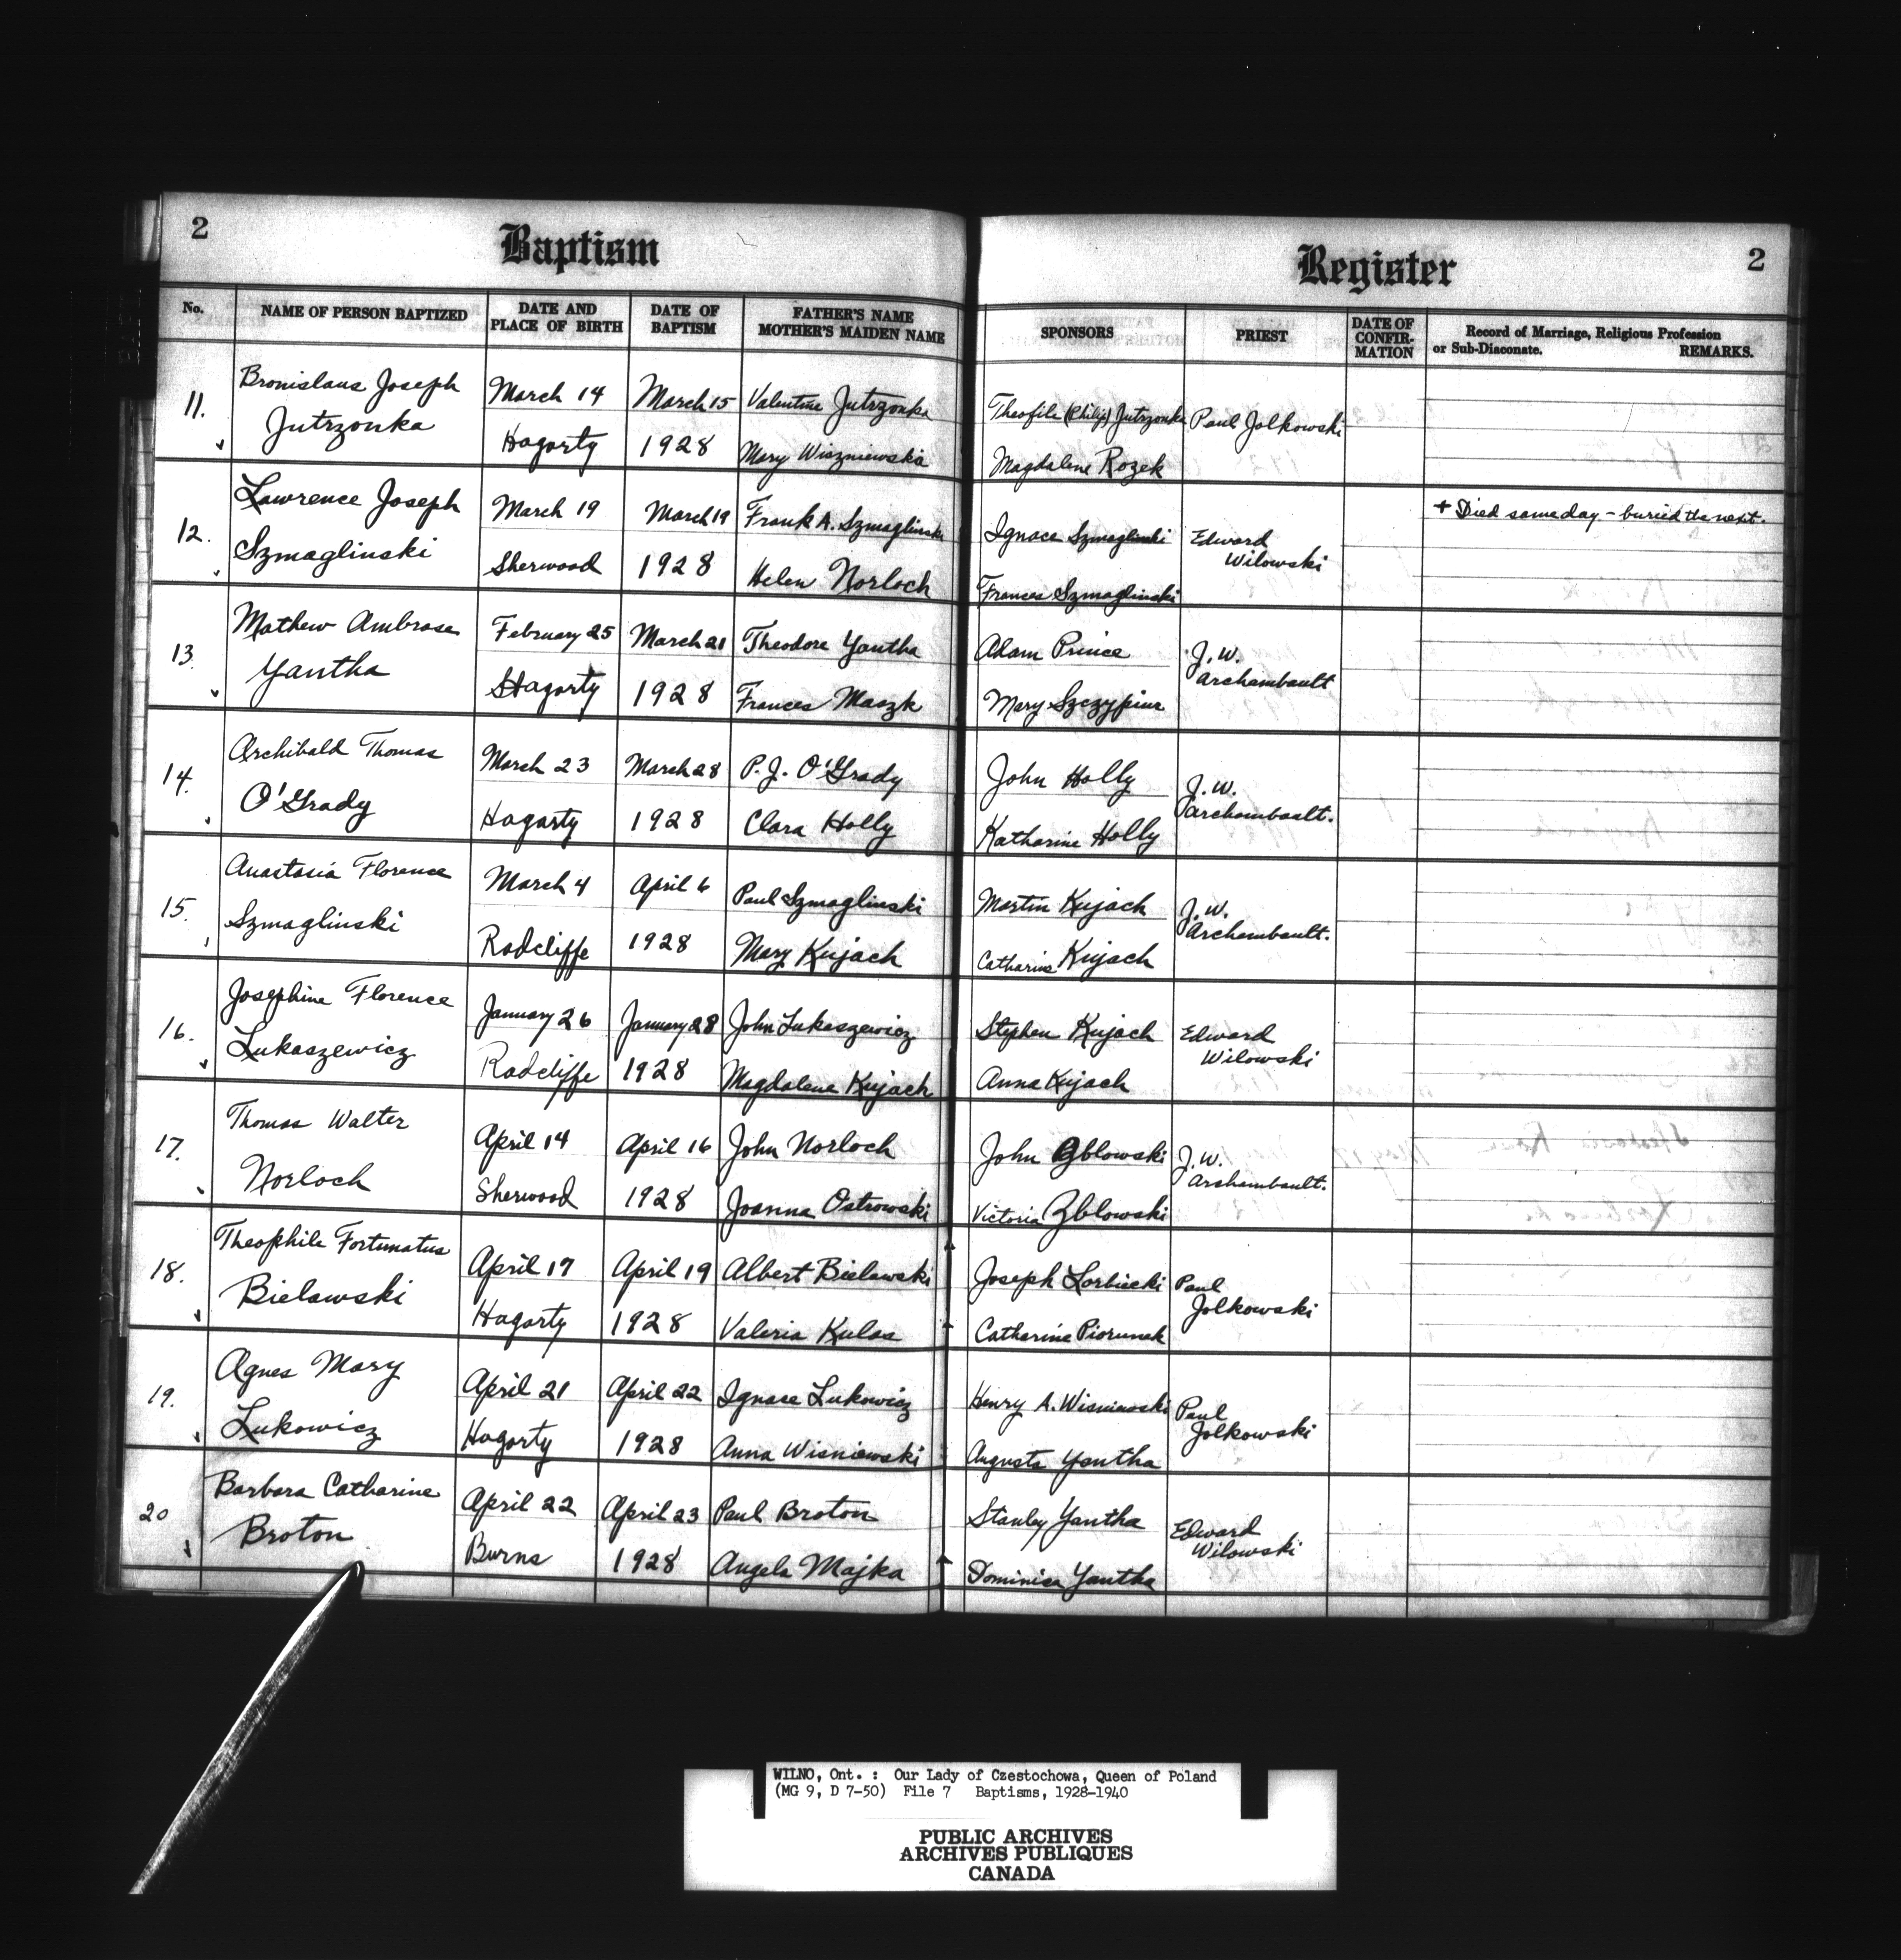 2
Baptism
Register
2
No.
NAME OF PERSON BAPTIZED
DATE AND PLACE OF BIRTH
DATE OF BAPTISM
FATHER'S NAME MOTHER'S MAIDEN NAME
SPONSORS
PRIEST
DATE OF CONFIR-MATION
Record of Marriage, Religious Profession or Sub-Diaconate. REMARKS.
11.
Bronislaus Joseph
Jutrzonka
March 14
Hagarty
March 15
1928
Valentine Jutrzonka
Mary Wiszniewska
Theofile (Philip) Jutrzonka
Magdalene Rozek
Paul Jolkowski
12.
Lawrence Joseph
Szmaglinski
March 19
Sherwood
March 19
1928
Frank A. Szmaglinski
Helen Norloch
Ignace Szmaglinski
Frances Szmaglinski
Edward
Wilowski
+ Died same day - buried the next.
13.
Mathew Ambrose
Yantha
February 25
Hagarty
March 21
1928
Theodore Yantha
Frances Maszk
Adam Prince
Mary Szczypior
J. W.
Archambault
14.
Archibald Thomas
O'Grady
March 23
Hagarty
March 28
1928
P. J. O'Grady
Clara Holly
John Holly
Katharine Holly
J. W.
Archambault.
15.
Anastasia Florence
Szmaglinski
March 4
Radcliffe
April 6
1928
Paul Szmaglinski
Mary Kujach
Martin Kujach
Catharine Kujach
J. W.
Archambault.
16.
Josephine Florence
Lukaszewicz
January 26
Radcliffe
January 28
1928
John Lukaszewicz
Magdalena Kujach
Stephen Kujach
Anna Kujach
Edward
Wilowski
17.
Thomas Walter
Norloch
April 14
Sherwood
April 16
1928
John Norloch
Joanna Ostrowski
John Zblowski
Victoria Zblowski
J. W.
Archambault.
18.
Theophile Fortunatus
Bielawski
April 17
Hagarty
April 19
1928
Albert Bielawski
Valeria Kulas
Joseph Lorbiecki
Catharine Piorunek
Paul
Jolkowski
19.
Agnes Mary
Lukowicz
April 21
Hagarty
April 22
1928
Ignace Lukowicz
Anna Wisniewski
Henry A. Wisniewski
Augusta Yantha
Paul
Jolkowski
20
Barbara Catharine
Broton
April 22
Burns
April 23
1928
Paul Broton
Angela Majka
Stanley Yantha
Dominica Yantha
Edward
Wilowski
WILNO, Ont. : Our Lady of Czestochowa, Queen of Poland
(MG 9, D 7-50) File 7 Baptisms, 1928-1940
PUBLIC ARCHIVES
ARCHIVES PUBLIQUES
CANADA